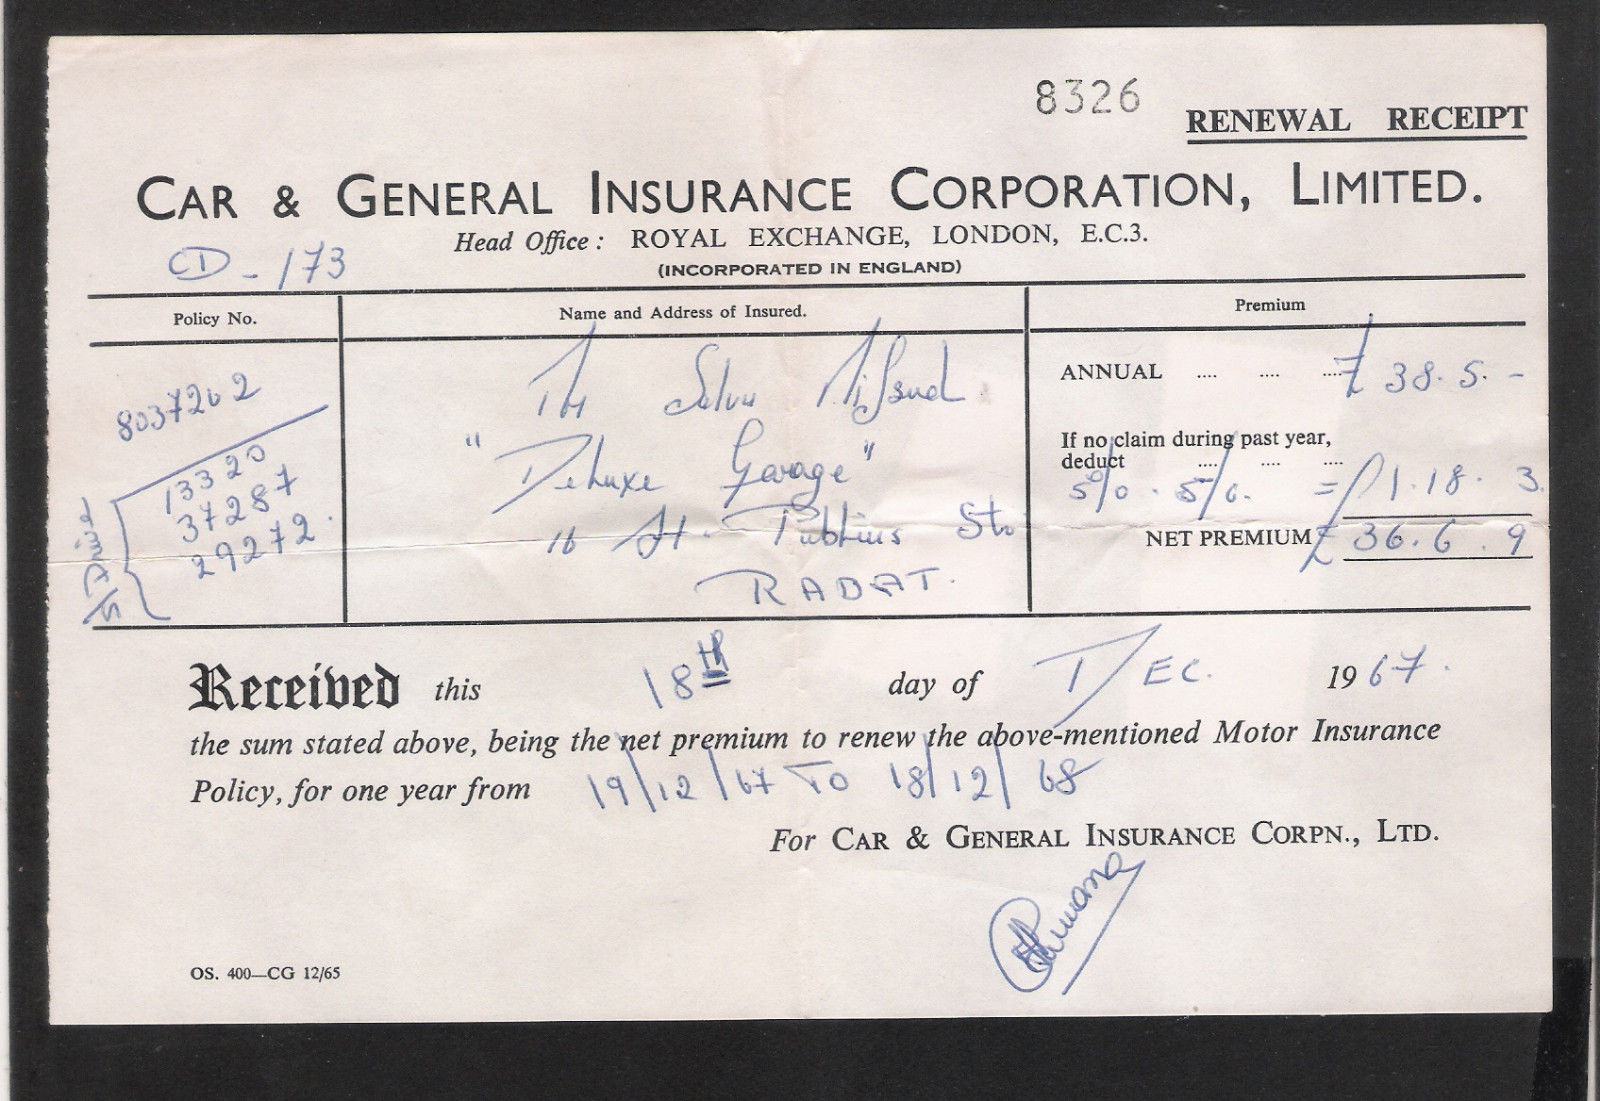 8326
RENEWAL RECEIPT
CAR & GENERAL INSURANCE CORPORATION, LIMITED.
Head Office: ROYAL EXCHANGE, LONDON, E.C.3.
CD - 173
(INCORPORATED IN ENGLAND)
Policy No.
Name and Address of Insured.
Premium
8037262
13320
37287
29272.
"DeLuxe Garage"
16 St. Publius Str
RABAT.
ANNUAL .... .... .... £ 38. 5. -
If no claim during past year,
deduct .... .... ....
5% . 5%. = 1. 18. 3.
NET PREMIUM £ 36. 6. 9
Received this 18th day of DEC. 1967.
the sum stated above, being the net premium to renew the above-mentioned Motor Insurance
Policy, for one year from 19/12/67 TO 18/12/68
For CAR & GENERAL INSURANCE CORPN., LTD.
OS. 400—CG 12/65